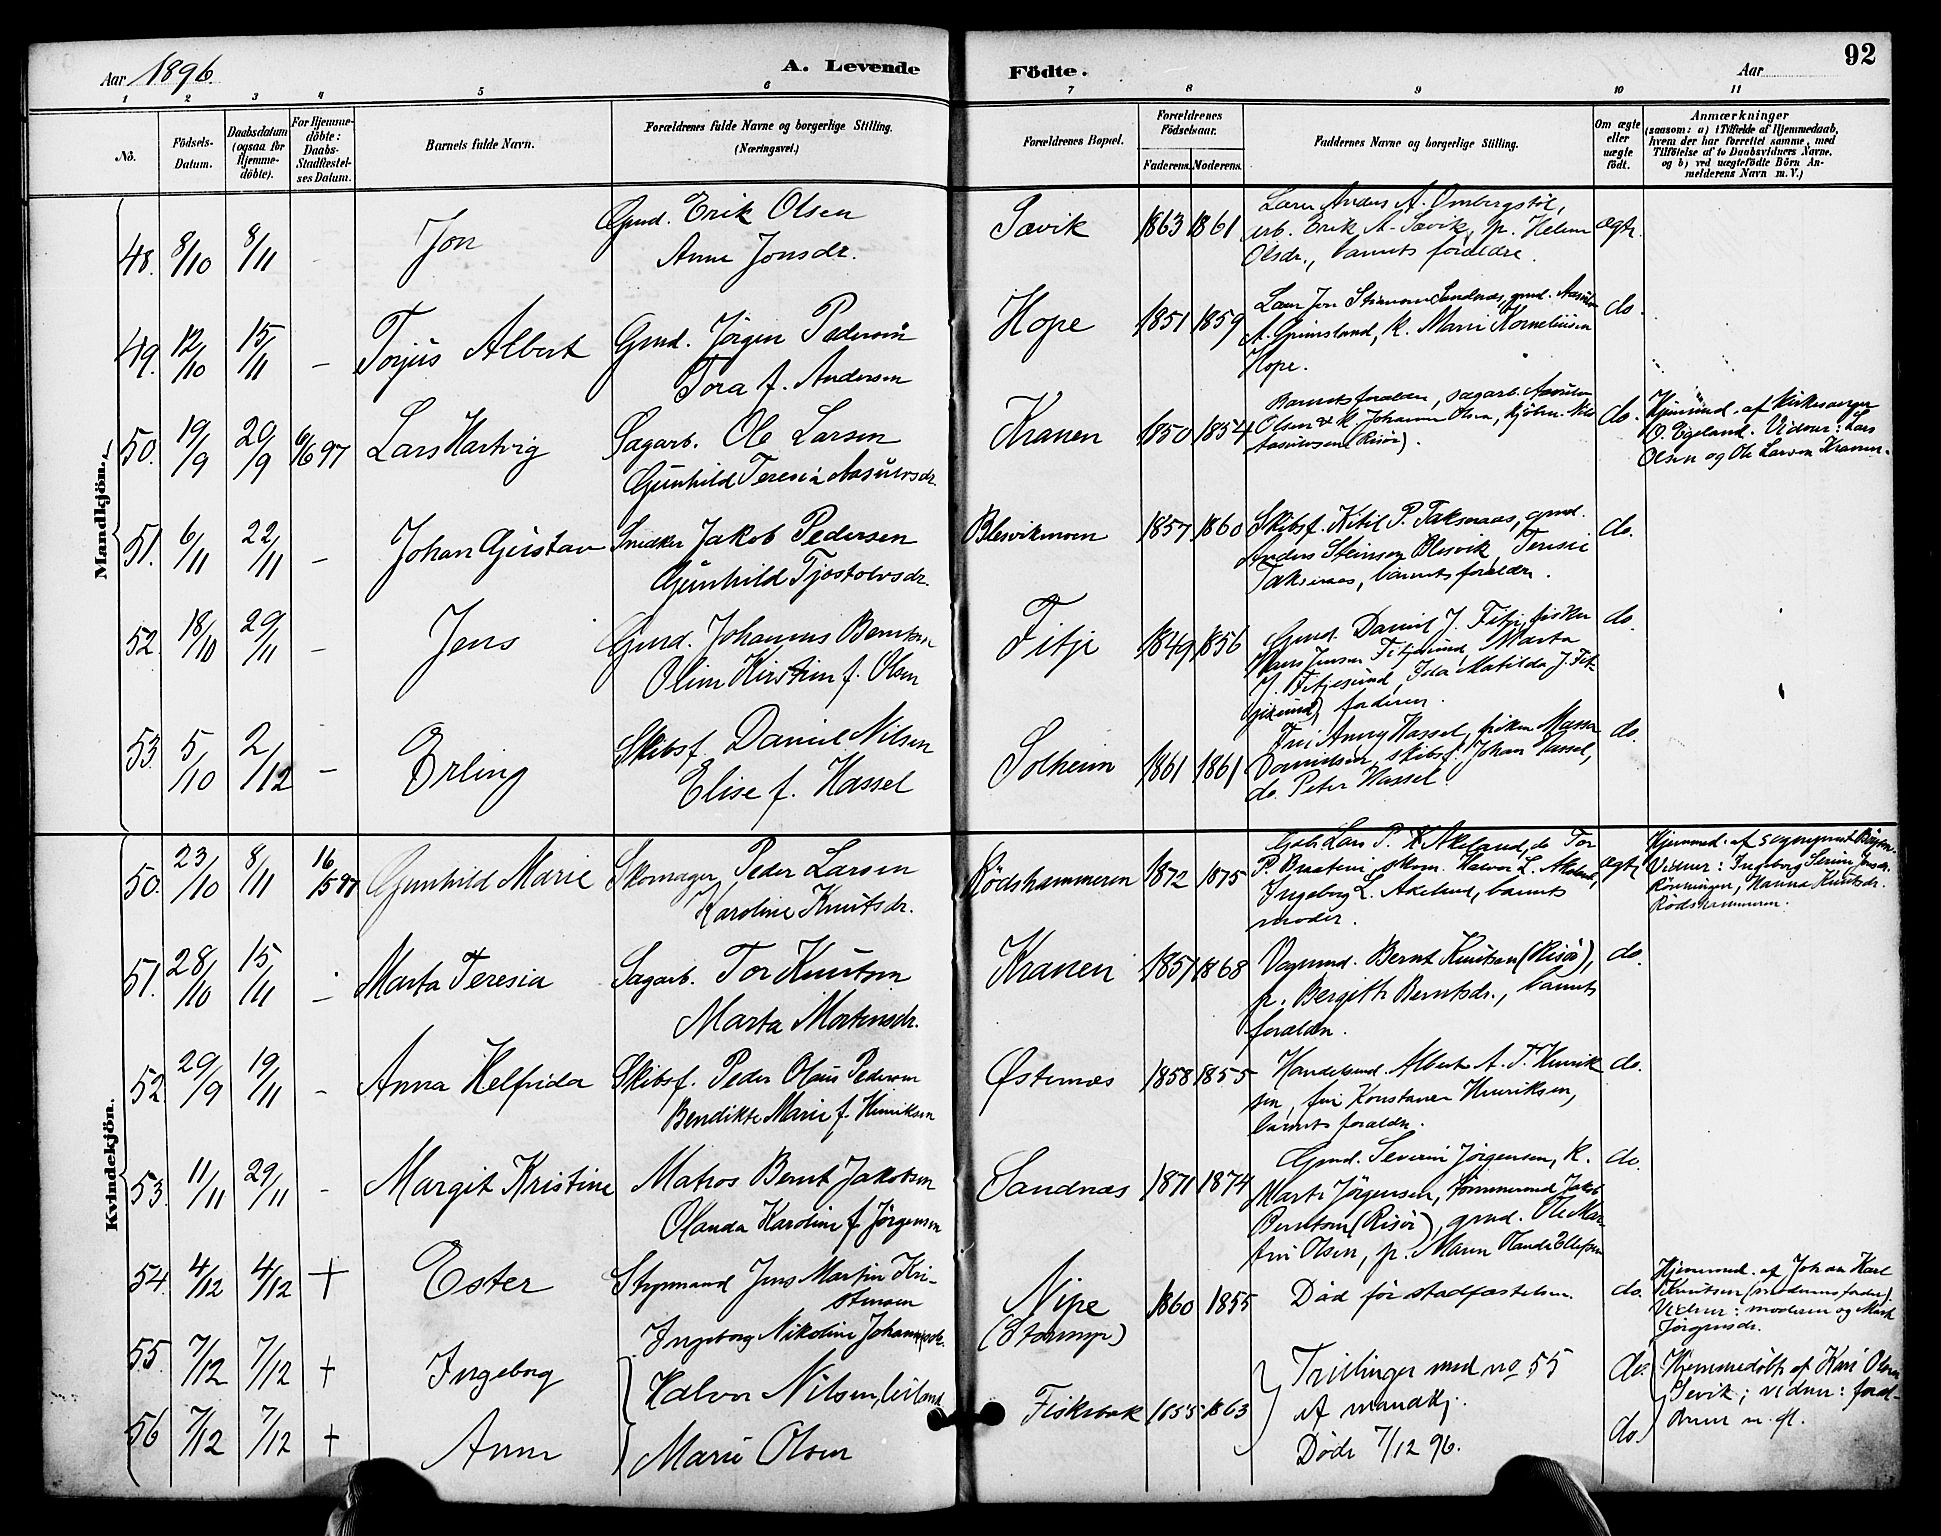 92
Aar 1896.
A. Levende Födte.
Aar
1 2 3 4 5 6 7 8 9 10 11
No.
Födsels-Datum.
Daabsdatum (ogsaa for Hjemmedöbte).
For Hjemmedöbte: Daabs-Stadfæstelses Datum.
Barnets fulde Navn.
Forældrenes fulde Navne og borgerlige Stilling. (Næringsvei.)
Forældrenes Bopæl.
Forældrenes Födselsaar.
Faderens. Moderens.
Faddernes Navne og borgerlige Stilling.
Om ægte eller uægte födt.
Anmærkninger
(saasom: a) i Tilfælde af Hjemmedaab, hvem der har forrettet samme, med Tilföielse af to Daabsvidners Navne, og b) ved uægtefödte Börn Anmelderens Navn m. V.)
Mandkjön.
48. 8/10 8/11 Jon
Gmd. Erik Olsen
Anne Jonsdr.
Sævik 1863 1861
Lærer Anders A. Ombergstöl,
erb. Erik A. Sævik, p. Helene
Olsdr., barnets forældre.
ægte.
49. 12/10 15/11 - Torjus Albert
Gmd. Jörgen Pedersen
Tora f. Andersen
Hope 1851 1859
A. Grimsland, k. Marie Korneliusen
Hope.
do.
50. 19/9 20/9 6/6 97 Lars Hartvig
Sagarb. Ole Larsen
Gunhild Teresia Aasulvsdr.
Kranen 1850 1854
Barnets forældre, sagarb. Aasulv
Olsen & k. Johanne Olsen,
Aasulvsen (Risör).
do.
Hjemmd. af kirkesanger
O. Egeland. Vidner: Lars
Olsen og Ole Larsen Kranen.
51. 6/11 22/11 - Johan Gustav
Snedker Jakob Pedersen
Gunhild Tjostolvsdr.
Blesvikmoen 1857 1860
Skibsf. Kitil P. Taksnaas, gmd.
Anders Steinsen Blesvik, Teresie
Taksnaas, barnets forældre.
do.
52. 18/10 29/11 - Jens
Gmd. Johannes Berntsen
Oline Kirstine f. Olsen
Fitje 1849 1856
Gmd. Daniel J. Fitje, fisker
Hans Jensen Fitjesund, Marta
J. Fitjesund, Ida Matilda J. Fit-
jesund, faderen.
do.
53. 5/10 2/12 - Erling
Skibsf. Daniel Nilsen
Elise f. Hassel
Solheim 1861 1861
Fru Anny Hassel, fröken
Danielsen, skibsf. Johan Hassel,
do. Peter Hassel.
do.
Kvindekjön.
50. 23/10 8/11 16/5 97 Gunhild Marie
Skomager Peder Larsen
Karoline Knutsdr.
Rödshammeren 1872 1875
Lars P. Akeland, do Tor
P. Braaten, skom. Halvor L. Akeland,
Ingeborg L. Akeland, barnets
moder.
ægte
Hjemmd. af sogneprest
Vidner: Ingeborg Serine Jensdr.
Rönningen, Hanna Knutsdr.
Rödshammeren.
51. 28/10 15/11 - Marta Teresia
Sagarb. Tor Knutsen
Marta Mortensdr.
Kranen 1857 1868
Vognmd. Bernt Knutsen (Risör),
p. Bergitte Berntsdr., barnets
forældre.
do.
52. 29/9 19/11 - Anna Helfrida
Skibsf. Peder Olaus Pedersen
Bendikte Marie f. Henriksen
Østernæs 1858 1855
Handelsmd. Albert A. T. Henrik
sen, fru Konstance Henriksen,
barnets forældre.
do.
53. 11/11 29/11 - Margit Kristine
Matros Bernt Jakobsen
Olanda Karoline f. Jörgensen
Sandnæs 1871 1874
Gmd. Severin Jörgensen, k.
Marte Jörgensen, tömmermd Jakob
Berntsen (Risör), gmd. Ole Mar-
tin Olsen, p. Maren Olande Ellefsen
do.
54. 4/12 4/12 + Ester
Styrmand Jens Martin Kri-
stensen
Ingeborg Nikoline Johannesdr.
Nipe
1860 1855
Död för stadfæstelsen.
do.
Hjemmd. af Johan Karl
Knutsen (moderens fader)
Vidner: moderen og Mart
Jörgensdr.
55. 7/12 7/12 + Ingeborg
56 7/12 7/12 + Anne
Halvor Nilsen,
Marie Olsen
Fiskebæk 1855 1863
Trillinger med no 55
af mandkj.
Döde 7/12 96.
do.
do.
Hjemmedöbt af Kari Olsen
Sævik; vidner: foræl-
drene m. fl.